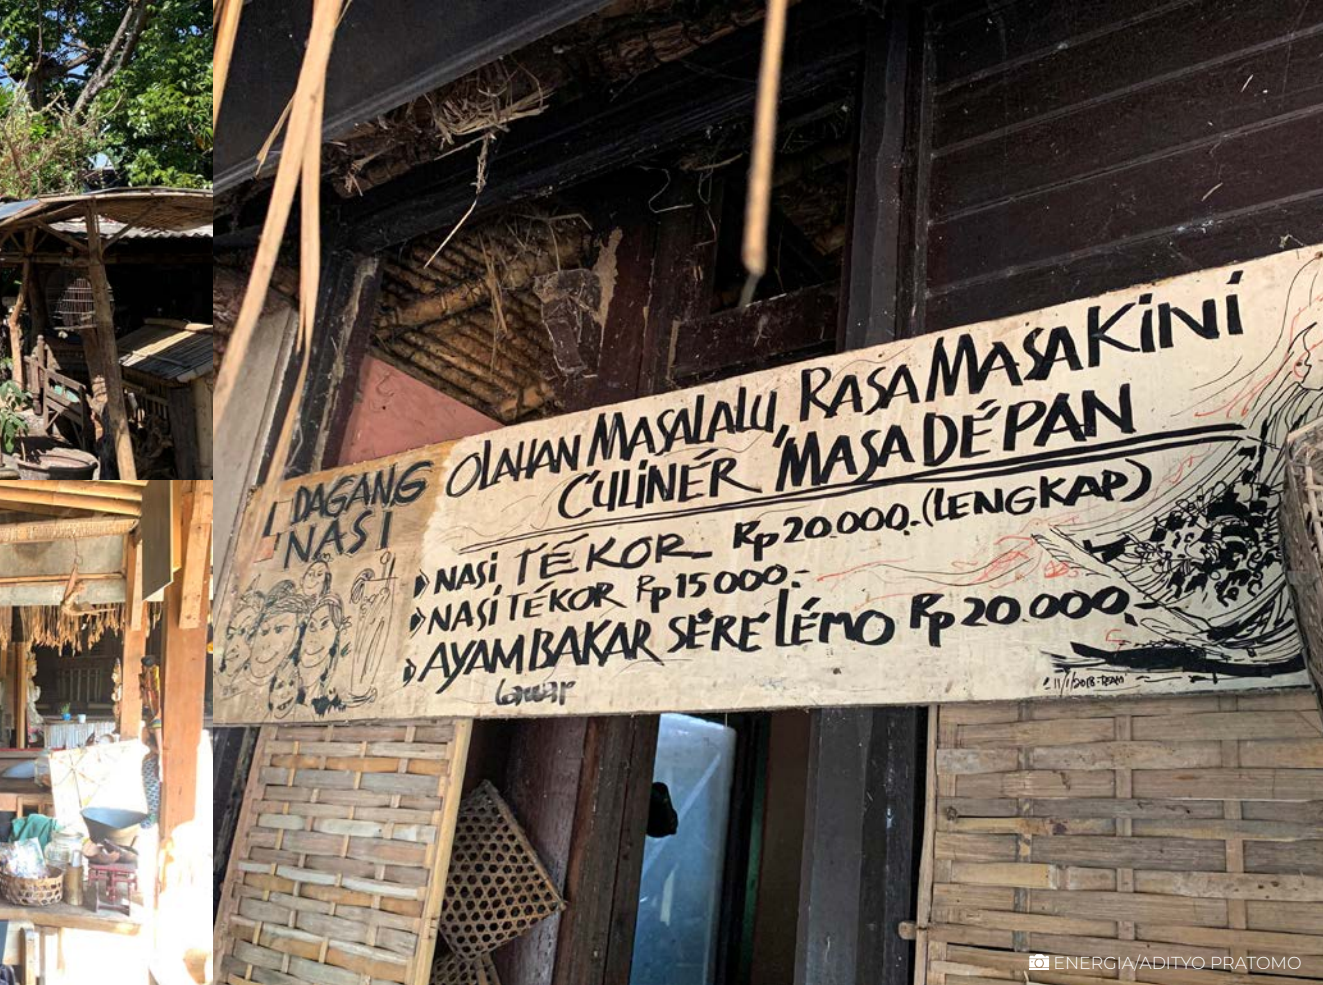 DAGANG
NASI
OLAHAN MASALALU, RASA MASAKINI
CULINÉR MASA DÉPAN
NASI TÉKOR Rp 20.000.(LENGKAP)
NASI TÉKOR Rp 15 000.-
AYAM BAKAR SÉRÉ LÉMO Rp 20.000.-
Lawar
11/1/2018
ENERGIA/ADITYO PRATOMO